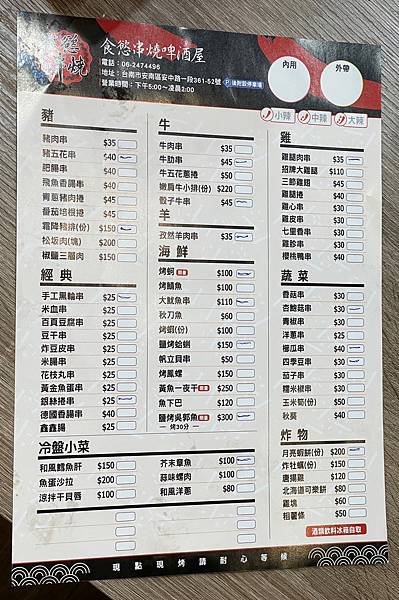 食慾串燒
食慾串燒啤酒屋
電話：06-2474496
地址：台南市安南區安中路一段361-52號 P 後附設停車場
營業時間：下午5:00～凌晨2:00
內用
外帶
小辣 中辣 大辣
豬
豬肉串 $35
豬五花串 $40
肥腸串 $40
飛魚香腸串 $40
青蔥豬肉捲 $45
番茄培根捲 $45
霜降豬排(份) $150
松坂肉(塊) $200
椒鹽三層肉 $150
經典
手工黑輪串 $25
米血串 $25
百頁豆腐串 $25
豆干串 $25
炸豆皮串 $25
米腸串 $25
花枝丸串 $25
黃金魚蛋串 $25
銀絲捲串 $25
德國香腸串 $40
鑫鑫腸 $25
牛
牛肉串 $35
牛肋串 $45
牛五花蔥捲 $50
嫩肩牛小排(份) $220
骰子牛串 $45
羊
孜然羊肉串 $35
海鮮
烤蚵 $100
烤鯖魚 $100
大魷魚串 $110
秋刀魚 $60
烤蝦(份) $100
鹽烤蛤蜊 $150
帆立貝串 $50
烤鳳螺 $150
黃魚一夜干 $250
魚下巴 $120
鹽烤吳郭魚 $300
－ 烤30分 －
雞
雞腿肉串 $35
招牌大雞腿 $110
三節雞翅 $45
雞腿捲 $40
雞心串 $30
雞皮串 $30
七里香串 $30
雞胗串 $30
櫻桃鴨串 $40
蔬菜
香菇串 $30
杏鮑菇串 $30
青椒串 $30
洋蔥串 $25
櫛瓜串 $40
四季豆串 $30
茄子串 $30
糯米椒串 $30
玉米筍(份) $50
秋葵 $40
炸物
月亮蝦餅(份) $200
炸牡蠣(份) $150
唐揚雞 $120
北海道可樂餅 $80
雞塊 $60
相薯條 $50
酒類飲料冰箱自取
冷盤小菜
和風鱈魚肝 $150
魚蛋沙拉 $200
涼拌干貝唇 $100
芥末章魚 $100
蒜味螺肉 $100
和風洋蔥 $80
現點現烤請耐心等候